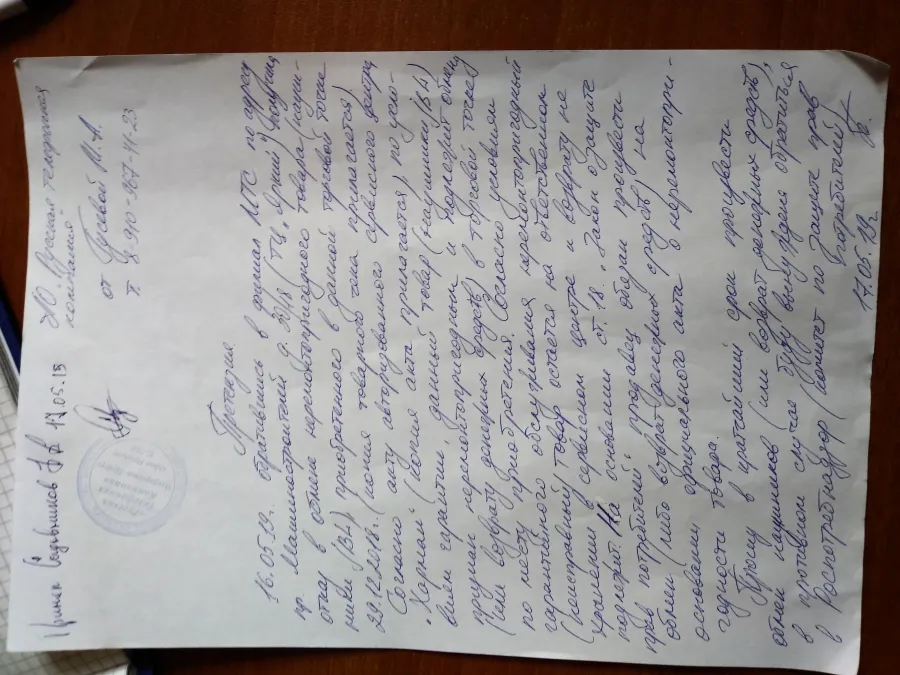 Принял Садовников 17.05.19
АО "Русская телефонная
компания"
от Гусевой М.А.
т. 8-910-967-44-23
Претензия
16.05.19г. обратившись в филиал МТС по адресу
пр. Машиностроителей д. 30/18 (ТЦ "Яркий") получила
отказ в обмене неремонтопригодного товара (науш-
ники JBL) приобретенного в данной торговой точке
29.12.2018г. (копия товарного чека прилагается)
Согласно акту авторизованного сервисного центра
"Харман" (копия акта прилагается) по усло-
виям гарантии данный товар (наушники JBL)
признан неремонтопригодным и подлежит обмену
(или возврату денежных средств) в торговой точке
по месту приобретения. Согласно условиям
гарантийного обслуживания неремонтопригодный
(неисправный) товар остается на ответственном
хранении в сервисном центре и возврату не
подлежит. На основании ст. 18. "Закон о защите
прав потребителей" продавец обязан произвести
обмен (либо возврат денежных средств) на
основании официального акта о неремонтопри-
годности товара.
Прошу в кратчайший срок произвести
обмен наушников (или возврат денежных средств),
в противном случае буду вынуждена обратиться
в Роспотребнадзор (комитет по защите прав
потребителей)
17.05.19г.